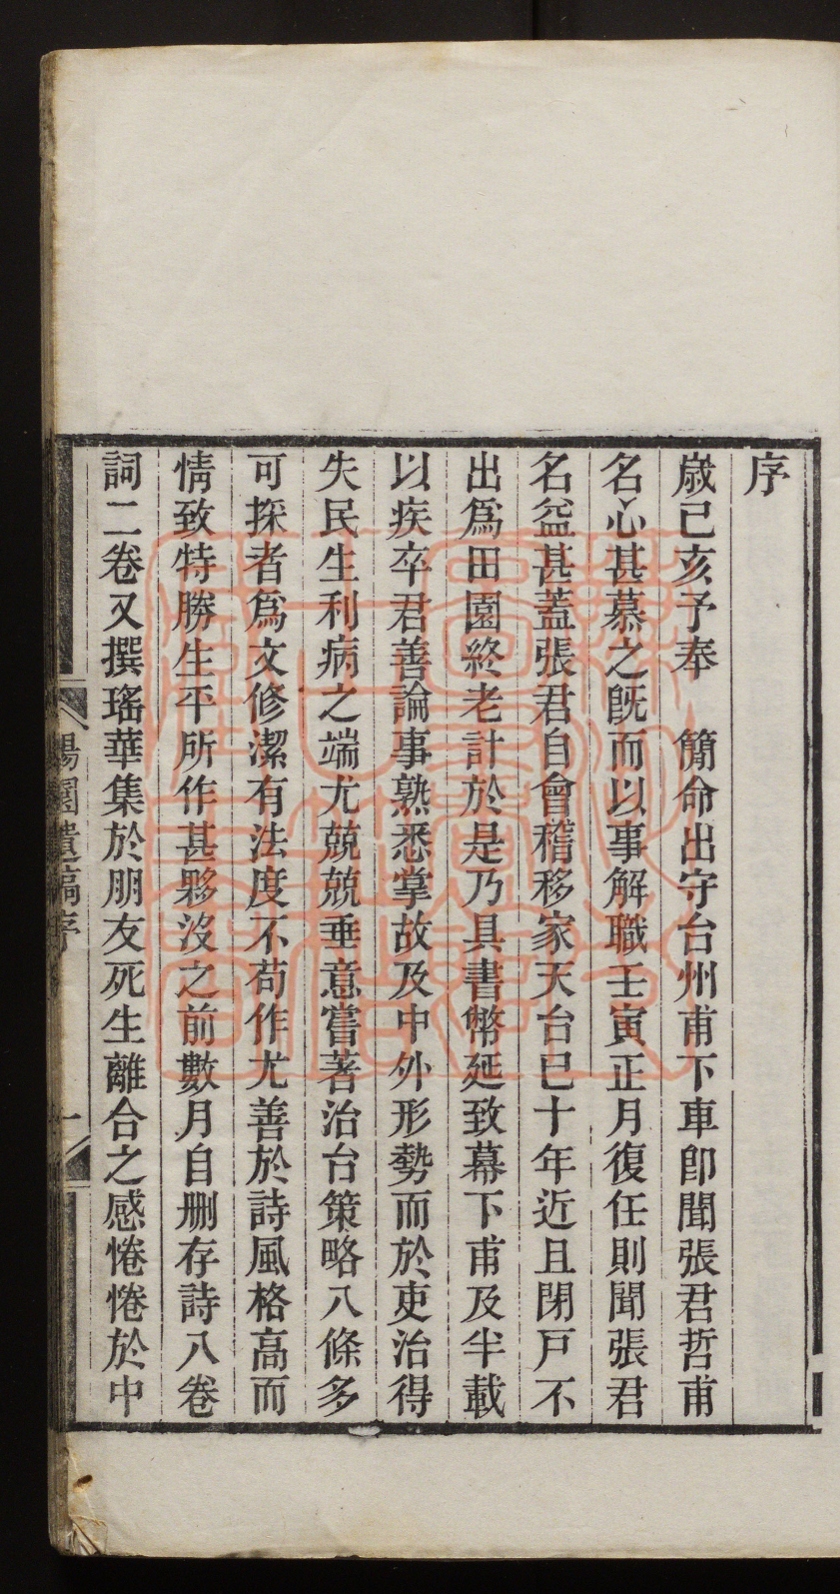 序
歲己亥予奉　簡命出守台州甫下車卽聞張君哲甫
名心甚慕之旣而以事解職壬寅正月復任則聞張君
名益甚蓋張君自會稽移家天台已十年近且閉戶不
出爲田園終老計於是乃具書幣延致幕下甫及半載
以疾卒君善論事熟悉掌故及中外形勢而於吏治得
失民生利病之端尤兢兢垂意嘗著治台策略八條多
可採者爲文修潔有法度不苟作尤善於詩風格高而
情致特勝生平所作甚夥沒之前數月自删存詩八卷
詞二卷又撰瑤華集於朋友死生離合之感惓惓於中
遺稿序
一